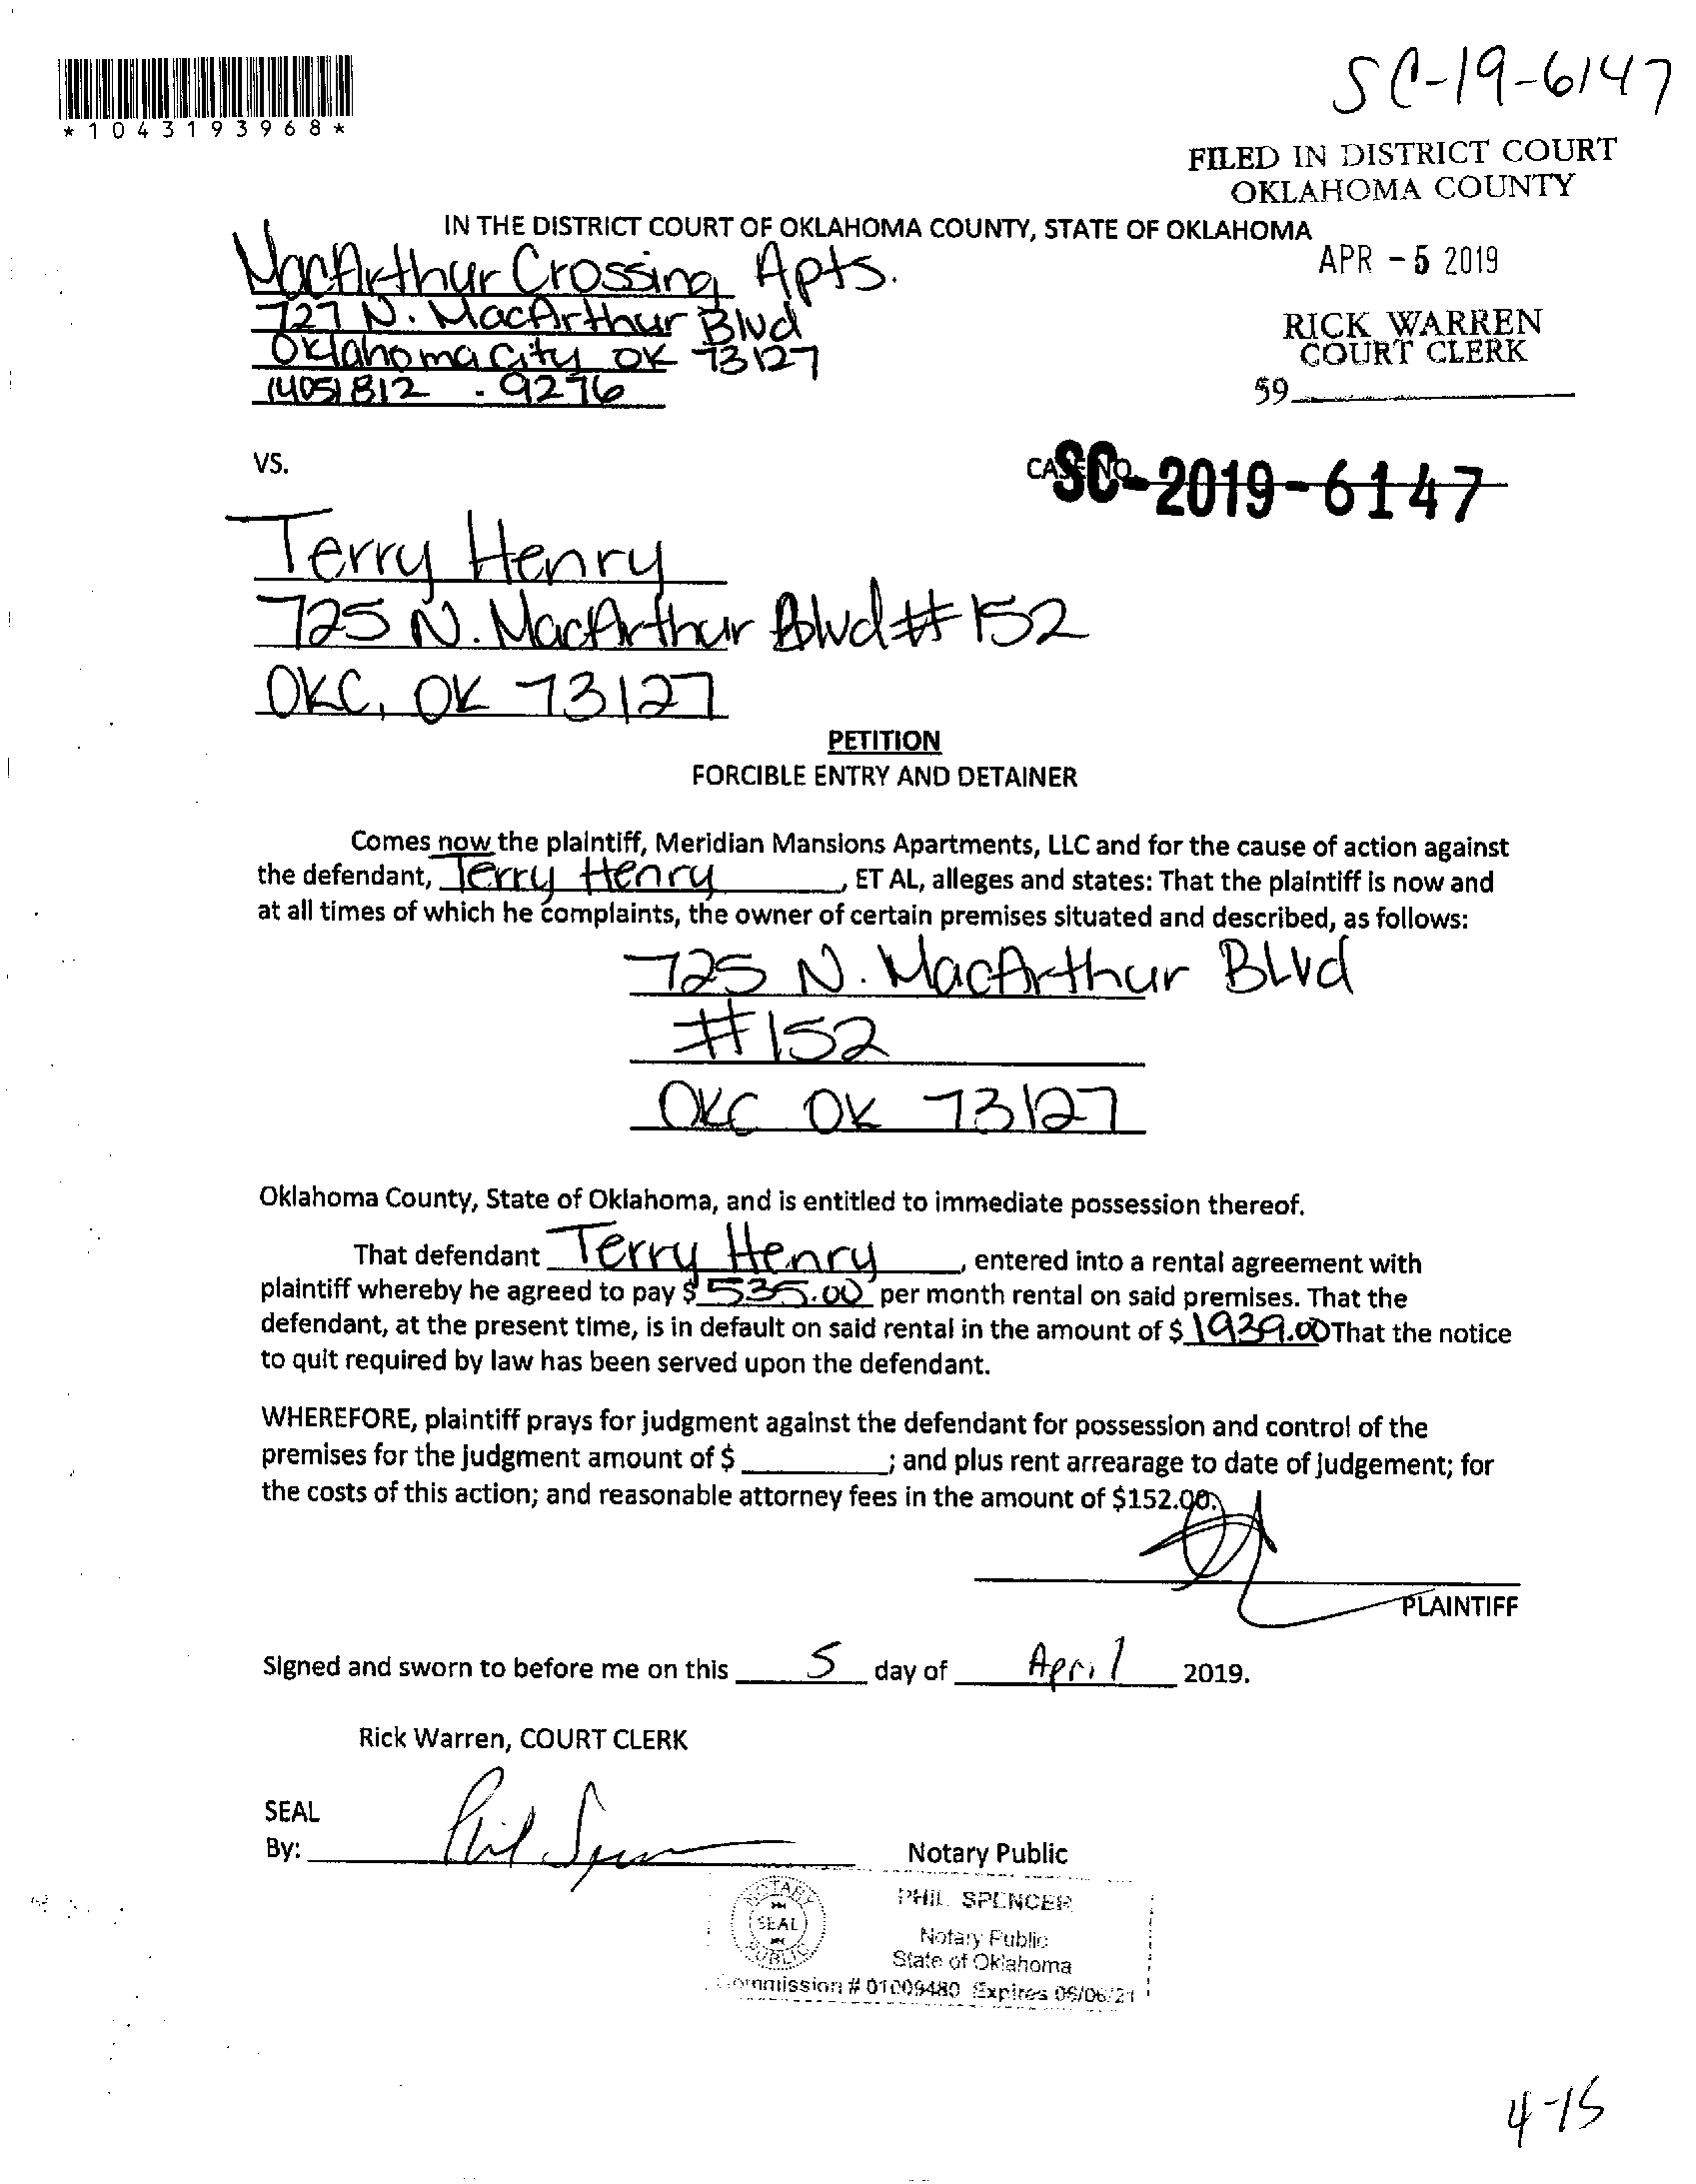 *1043193968*
SC-19-6147
FILED IN DISTRICT COURT
OKLAHOMA COUNTY
IN THE DISTRICT COURT OF OKLAHOMA COUNTY, STATE OF OKLAHOMA
MacArthur Crossing Apts.
727 N. MacArthur Blvd
Oklahoma City OK 73127
(405) 812 - 9276
APR - 5 2019
RICK WARREN
COURT CLERK
59
VS.
CASE NO. SC-2019-6147
Terry Henry
725 N. MacArthur Blvd #152
OKC, OK 73127
PETITION
FORCIBLE ENTRY AND DETAINER
Comes now the plaintiff, Meridian Mansions Apartments, LLC and for the cause of action against
the defendant, Terry Henry, ET AL, alleges and states: That the plaintiff is now and
at all times of which he complaints, the owner of certain premises situated and described, as follows:
725 N. MacArthur Blvd
#152
OKC OK 73127
Oklahoma County, State of Oklahoma, and is entitled to immediate possession thereof.
That defendant Terry Henry, entered into a rental agreement with
plaintiff whereby he agreed to pay $ 535.00 per month rental on said premises. That the
defendant, at the present time, is in default on said rental in the amount of $ 1939.00 That the notice
to quit required by law has been served upon the defendant.
WHEREFORE, plaintiff prays for judgment against the defendant for possession and control of the
premises for the judgment amount of $ ; and plus rent arrearage to date of judgement; for
the costs of this action; and reasonable attorney fees in the amount of $152.00.
PLAINTIFF
Signed and sworn to before me on this 5 day of April 2019.
Rick Warren, COURT CLERK
SEAL
By: Phil Spencer Notary Public
NOTARY
SEAL
PUBLIC
PHIL SPENCER
Notary Public
State of Oklahoma
Commission # 01009480 Expires 06/06/21
4-15